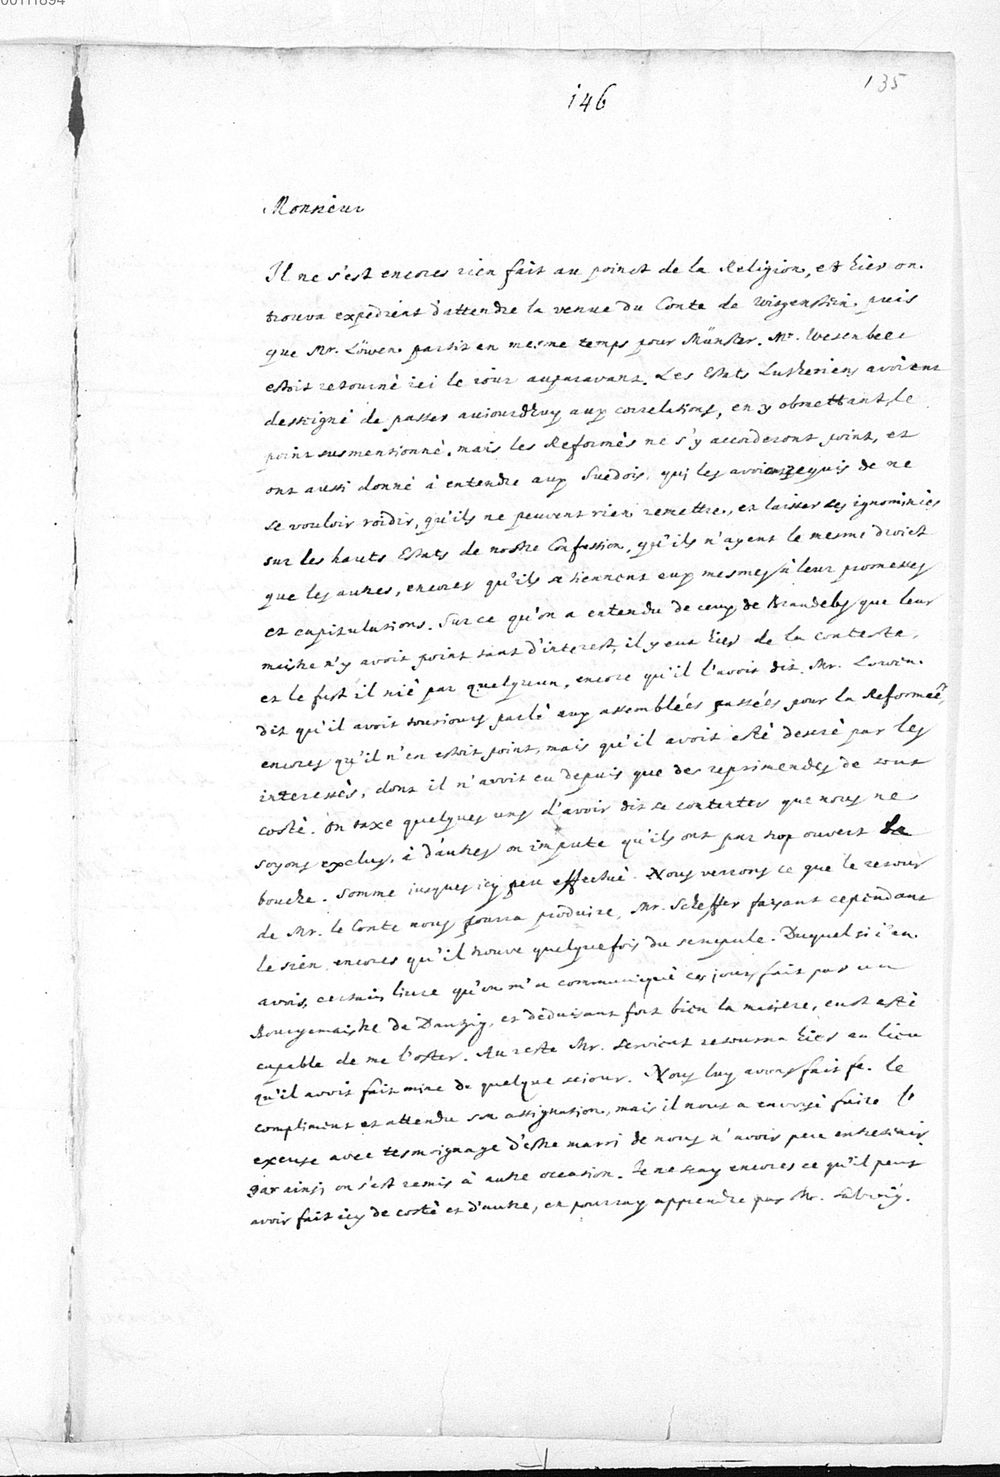 00111894
135
146
Monsieur
Il ne s'est encores rien fait au poinct de la Religion, et hier on
trouva expedient d'attendre la venue du Conte de Witgenstein. puis
que Mr. Löwen partit en mesme temps pour Münster. Mr. Wesenbec
estoit retourné ici le iour auparavant. Les Estats Lutheriens avoient
desseigné de passer auiourdhuy aux correlations, en y obmettant le
point susmentionné. mais les Reformés ne s'y accorderont point, et
ont aussi donné à entendre aux Suedois, qui les avoient requis de ne
se vouloir roidir, qu'ils ne peuvent rien remettre, et laisser ces ignominies
sur les hauts Estats de nostre Confession, qu'ils n'ayent le mesme droict
que les autres, encores qu'ils se tiennent eux mesmes à leur promesses
et capitulations. Sur ce qu'on a entendu de ceux de Brandebg que leur
maistre n'y avoit point tant d'interest, il y eut hier de la conteste,
et le fust il nié par quelquun, encore qu'il l'avoit dit. Mr. Lowen
dit qu'il avoit tousiours parlé aux assemblées passées pour la Reformée,
encores qu'il n'en estoit point, mais qu'il avoit esté desiré par les
interessés, dont il n'avoit eu depuis que des reprimendes de tout
costé. On taxe quelques uns d'avoir dit se contenter que nous ne
soyons exclus, à d'autres on impute qu'ils ont par trop ouvert la
bouche. Somme iusques icy peu effectué. Nous verrons ce que le retour
de Mr. le Conte nous pourra produire, Mr. Scheffer faisant cependant
le sien, encores qu'il trouve quelquefois du scrupule. Duquel si i'en
avois, certain livre qu'on m'a communiqué ces jours, fait par un
Bourgemaistre de Danzig, et déduisant fort bien la matiere, eust esté
capable de me l'oster. Au reste Mr. Servient retourna hier au lieu
qu'il avoit fait mine de quelque seiour. Nous luy avons fait fe. le
compliment et attendu son assignation, mais il nous a envoyé faire l'
excuse avec tesmoignage d'estre marri de nous n'avoir peu entretenir
par ainsi on s'est remis à autre occasion. Je ne scay encores ce qu'il peut
avoir fait icy de costé et d'autre, et pourray apprendre par Mr.